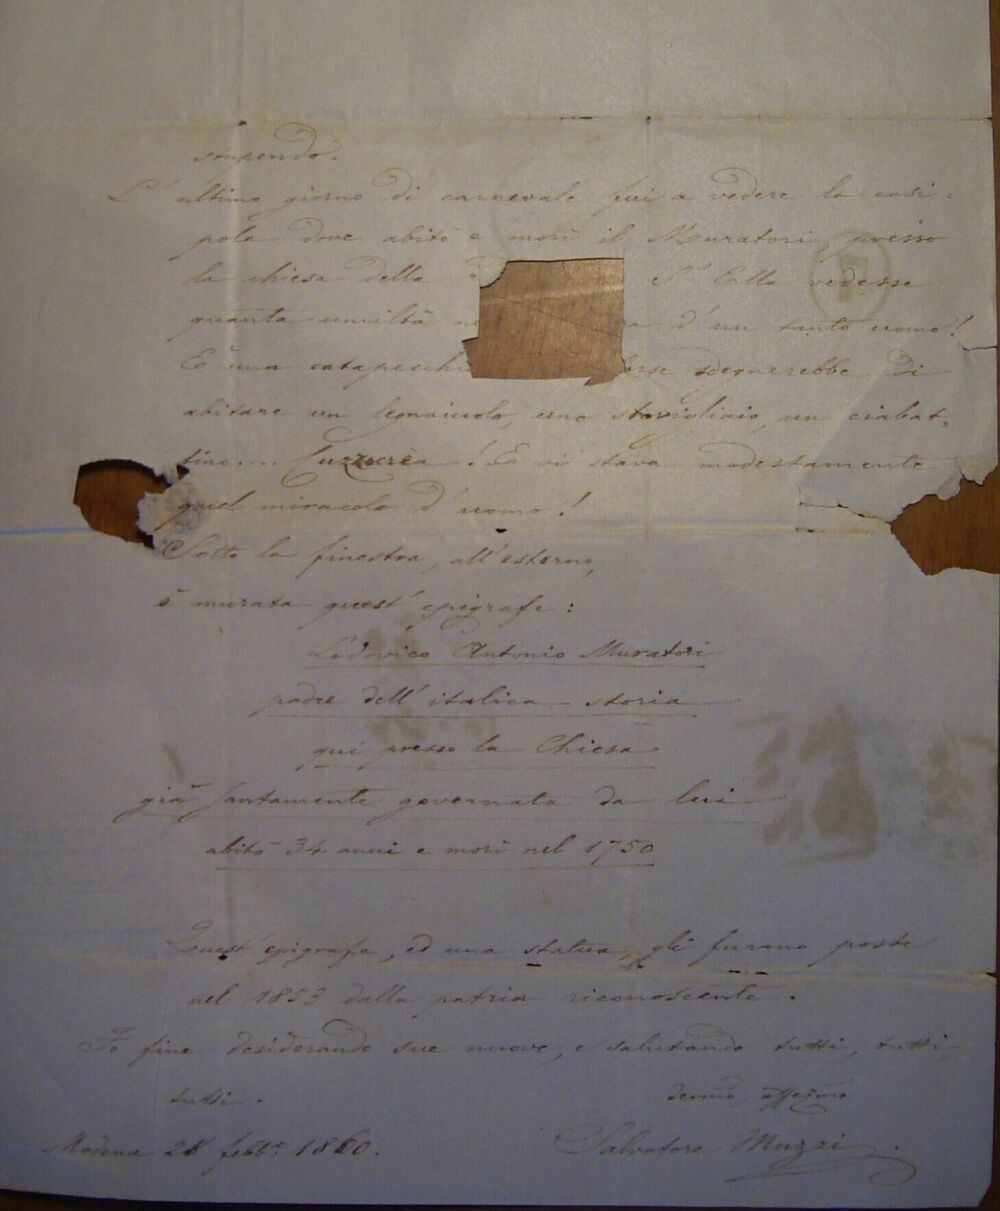 stupendo.
L'ultimo giorno di carnevale fui a vedere la casi=
pola dove abitò e morì il Muratori presso
la chiesa della S' Ella vedesse
quanta umiltà d'un tanto uomo!
È una catapecchi sdegnerebbe di
abitare un legnaiuolo, uno stovigliaio, un ciabat=
tino.... Cuzzerèa! E vi stava modestamente
quel miracolo d'uomo!
Sotto la finestra, all'esterno,
è murata quest' epigrafe:
Lodovico Antonio Muratori
padre dell' italica storia
qui presso la Chiesa
già santamente governata da lui
abitò 34 anni e morì nel 1750
Quest' epigrafe, ed una statua, gli furono poste
nel 1853 dalla patria riconoscente.
Fo fine desiderando sue nuove, e salutando tutti, tutti,
tutti.
devmo, affezmo
Modena 28 febbº 1860.
Salvatore Muzzi.